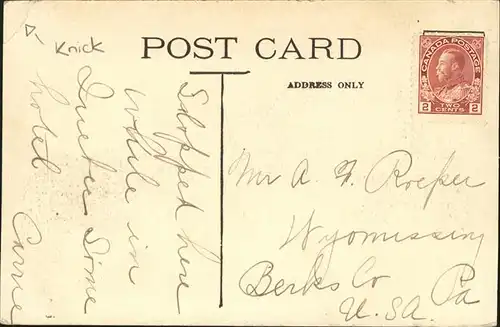 Knick
POST CARD
ADDRESS ONLY
CANADA POSTAGE
2 TWO CENTS 2
Stopped here
while in
Quebec Some
hotel
Carrie
Mr A. F. Roeper
Wyomissing
Berks Co Pa
U.S.A.